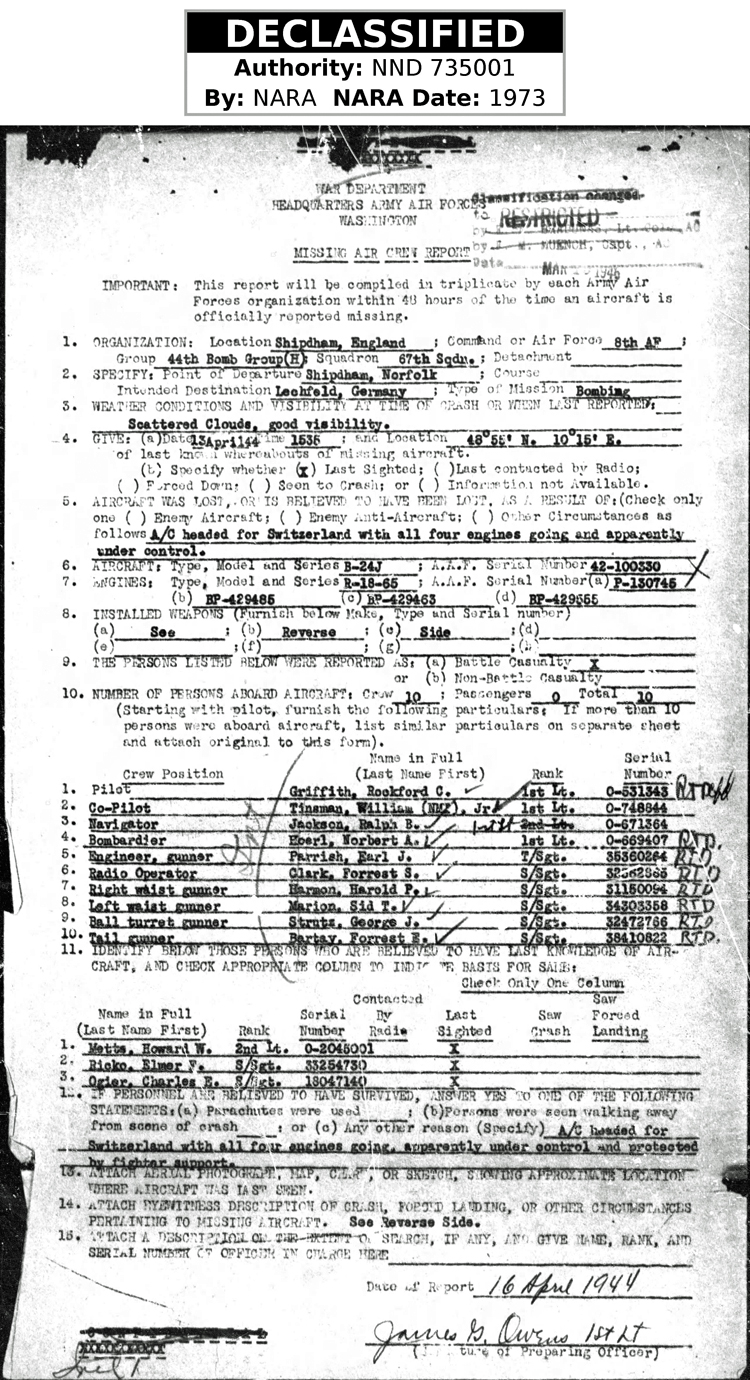 DECLASSIFIED
Authority: NND 735001
By: NARA NARA Date: 1973
WAR DEPARTMENT
HEADQUARTERS ARMY AIR FORCES
WASHINGTON
Classification changed
to RESTRICTED
by Lt. Col., AC
by J. M. MUENCH, Capt., AC
Date MAR 1946
MISSING AIR CREW REPORT
IMPORTANT: This report will be compiled in triplicate by each Army Air
Forces organization within 48 hours of the time an aircraft is
officially reported missing.
1. ORGANIZATION: Location Shipdham, England ; Command or Air Force 8th AF ;
Group 44th Bomb Group(H); Squadron 67th Sqdn. ; Detachment
2. SPECIFY: Point of Departure Shipdham, Norfolk ; Course
Intended Destination Lechfeld, Germany ; Type of Mission Bombing
3. WEATHER CONDITIONS AND VISIBILITY AT TIME OF CRASH OR WHEN LAST REPORTED:
Scattered Clouds, good visibility.
4. GIVE: (a)Date 13April44 Time 1535 ; and Location 48°55' N. 10°15' E.
of last known whereabouts of missing aircraft.
(b) Specify whether (x) Last Sighted; ( )Last contacted by Radio;
( ) Forced Down; ( ) Seen to Crash; or ( ) Information not Available.
5. AIRCRAFT WAS LOST, OR IS BELIEVED TO HAVE BEEN LOST, AS A RESULT OF:(Check only
one ( ) Enemy Aircraft; ( ) Enemy Anti-Aircraft; ( ) Other Circumstances as
follows A/C headed for Switzerland with all four engines going and apparently
under control.
6. AIRCRAFT: Type, Model and Series B-24J ; A.A.F. Serial Number 42-100330
7. ENGINES: Type, Model and Series R-18-65 ; A.A.F. Serial Number(a) P-130745
(b) BP-429485 (c) BP-429463 (d) BP-429555
8. INSTALLED WEAPONS (Furnish below Make, Type and Serial number)
(a) See ; (b) Reverse ; (c) Side ;(d)
(e) ;(f) ; (g) ;(h)
9. THE PERSONS LISTED BELOW WERE REPORTED AS: (a) Battle Casualty X
or (b) Non-Battle Casualty
10. NUMBER OF PERSONS ABOARD AIRCRAFT: Crew 10 ; Passengers 0 Total 10
(Starting with pilot, furnish the following particulars; If more than 10
persons were aboard aircraft, list similar particulars on separate sheet
and attach original to this form).
Name in Full Serial
Crew Position (Last Name First) Rank Number
1. Pilot Griffith, Rockford C. 1st Lt. 0-531343
2. Co-Pilot Tinsman, William (NMI), Jr. 1st Lt. 0-748844
3. Navigator Jackson, Ralph B. 1st Lt 2nd Lt. 0-671364
4. Bombardier Eberl, Norbert A. 1st Lt. 0-669407 RTD.
5. Engineer, gunner Parrish, Earl J. T/Sgt. 35360264 RTD
6. Radio Operator Clark, Forrest S. S/Sgt. RTD
7. Right waist gunner Harmon, Harold P. S/Sgt. 31150094 RTD
8. Left waist gunner Marion, Sid T. S/Sgt. 34303358 RTD
9. Ball turret gunner Strutz, George J. S/Sgt. 32472766 RTD
10. Tail gunner Bartay, Forrest E. S/Sgt. 38410822 RTD.
11. IDENTIFY BELOW THOSE PERSONS WHO ARE BELIEVED TO HAVE LAST KNOWLEDGE OF AIR-
CRAFT, AND CHECK APPROPRIATE COLUMN TO INDICATE BASIS FOR SAME:
Check Only One Column
Contacted Saw
Name in Full Serial By Last Saw Forced
(Last Name First) Rank Number Radio Sighted Crash Landing
1. Metts, Howard W. 2nd Lt. 0-2045001 X
2. Ricko, Elmer F. S/Sgt. 33254730 X
3. Ogier, Charles E. S/Sgt. 18047140 X
12. IF PERSONNEL ARE BELIEVED TO HAVE SURVIVED, ANSWER YES TO ONE OF THE FOLLOWING
STATEMENTS:(a) Parachutes were used ; (b)Persons were seen walking away
from scene of crash ; or (c) Any other reason (Specify) A/C headed for
Switzerland with all four engines going, apparently under control and protected
by fighter support.
13. ATTACH AERIAL PHOTOGRAPH, MAP, CHART, OR SKETCH, SHOWING APPROXIMATE LOCATION
WHERE AIRCRAFT WAS LAST SEEN.
14. ATTACH EYEWITNESS DESCRIPTION OF CRASH, FORCED LANDING, OR OTHER CIRCUMSTANCES
PERTAINING TO MISSING AIRCRAFT. See Reverse Side.
15. ATTACH A DESCRIPTION OF THE EXTENT OF SEARCH, IF ANY, AND GIVE NAME, RANK, AND
SERIAL NUMBER OF OFFICER IN CHARGE HERE
Date of Report 16 April 1944
James G. Owens 1st Lt
(Signature of Preparing Officer)